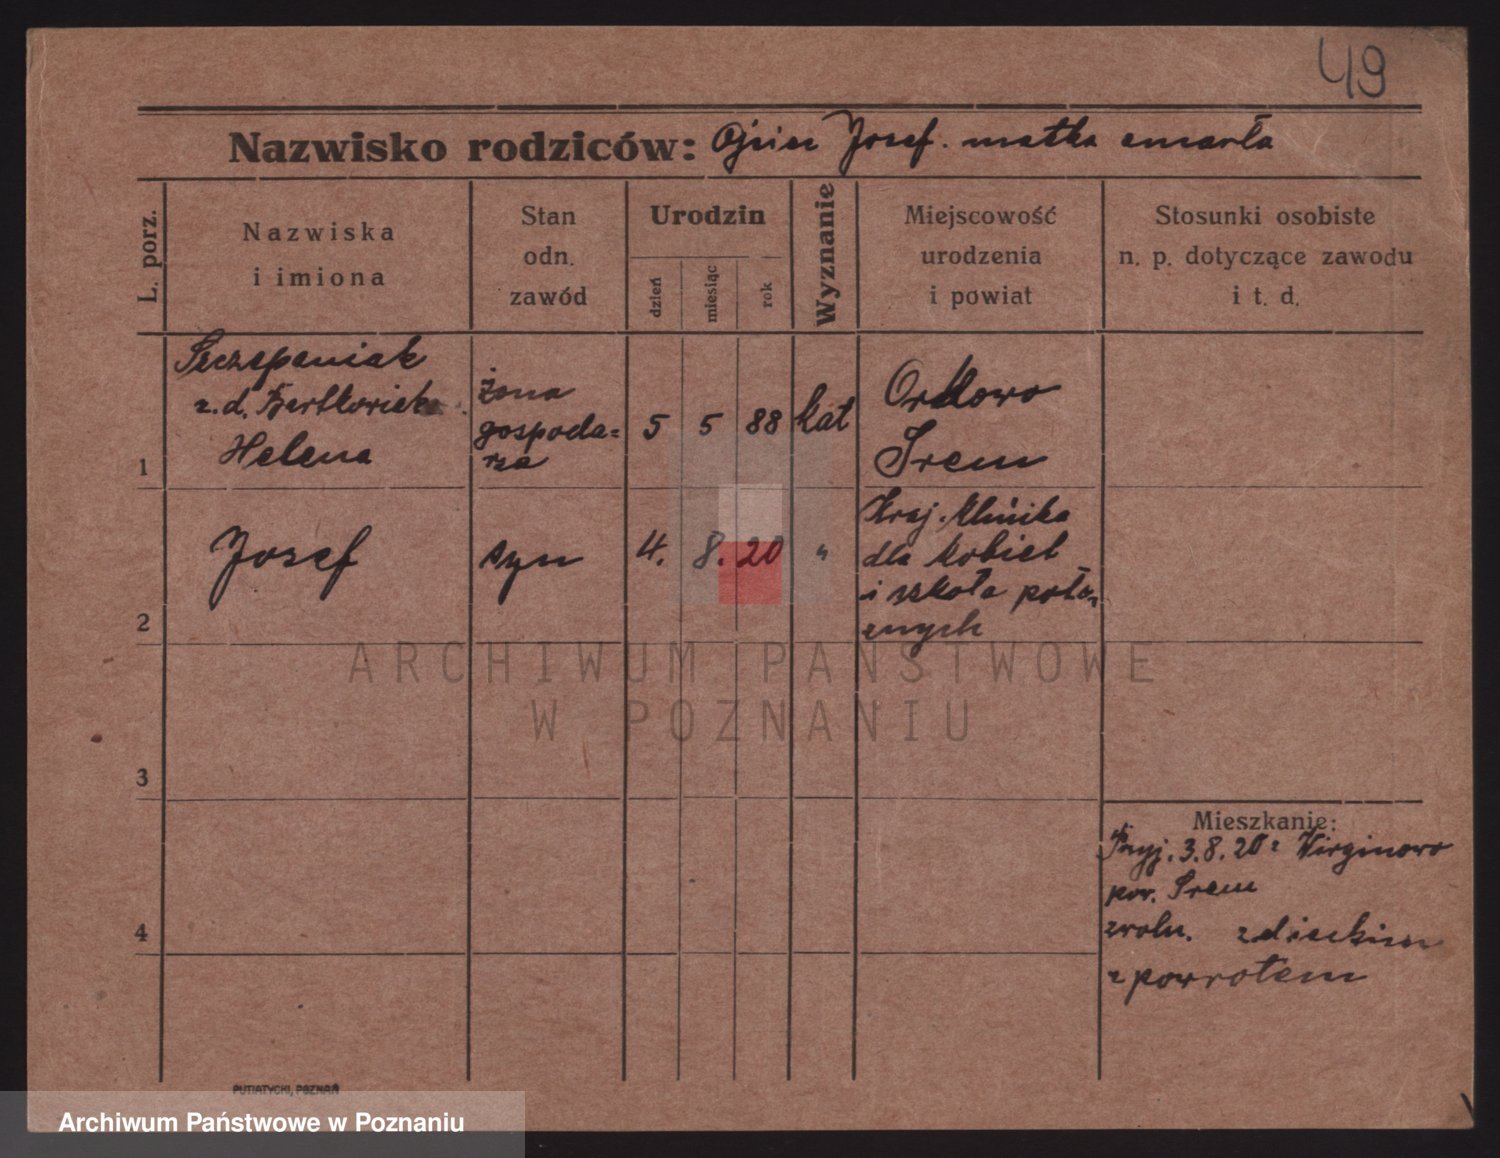 49
Nazwisko rodziców: Ojciec Josef. matka umarła
L. porz.
Nazwiska
i imiona
Stan
odn.
zawód
Urodzin
dzień
miesiąc
rok
Wyznanie
Miejscowość
urodzenia
i powiat
Stosunki osobiste
n. p. dotyczące zawodu
i t. d.
1
Szczepaniak
z. d. Bartkowiak
Helena
żona
gospoda=
rza
5 5 88
kat
Orkowo
Śrem
2
Josef
syn
4. 8. 20
"
Kraj. Klinika
dla kobiet
i szkoła poło-
żnych
3
4
Mieszkanie:
Przyj. 3.8.20 z Wirginowo
pow. Śrem
zwoln. z dzieckiem
z powrotem
ARCHIWUM PAŃSTWOWE
W POZNANIU
PUTIATYCKI, POZNAŃ
Archiwum Państwowe w Poznaniu